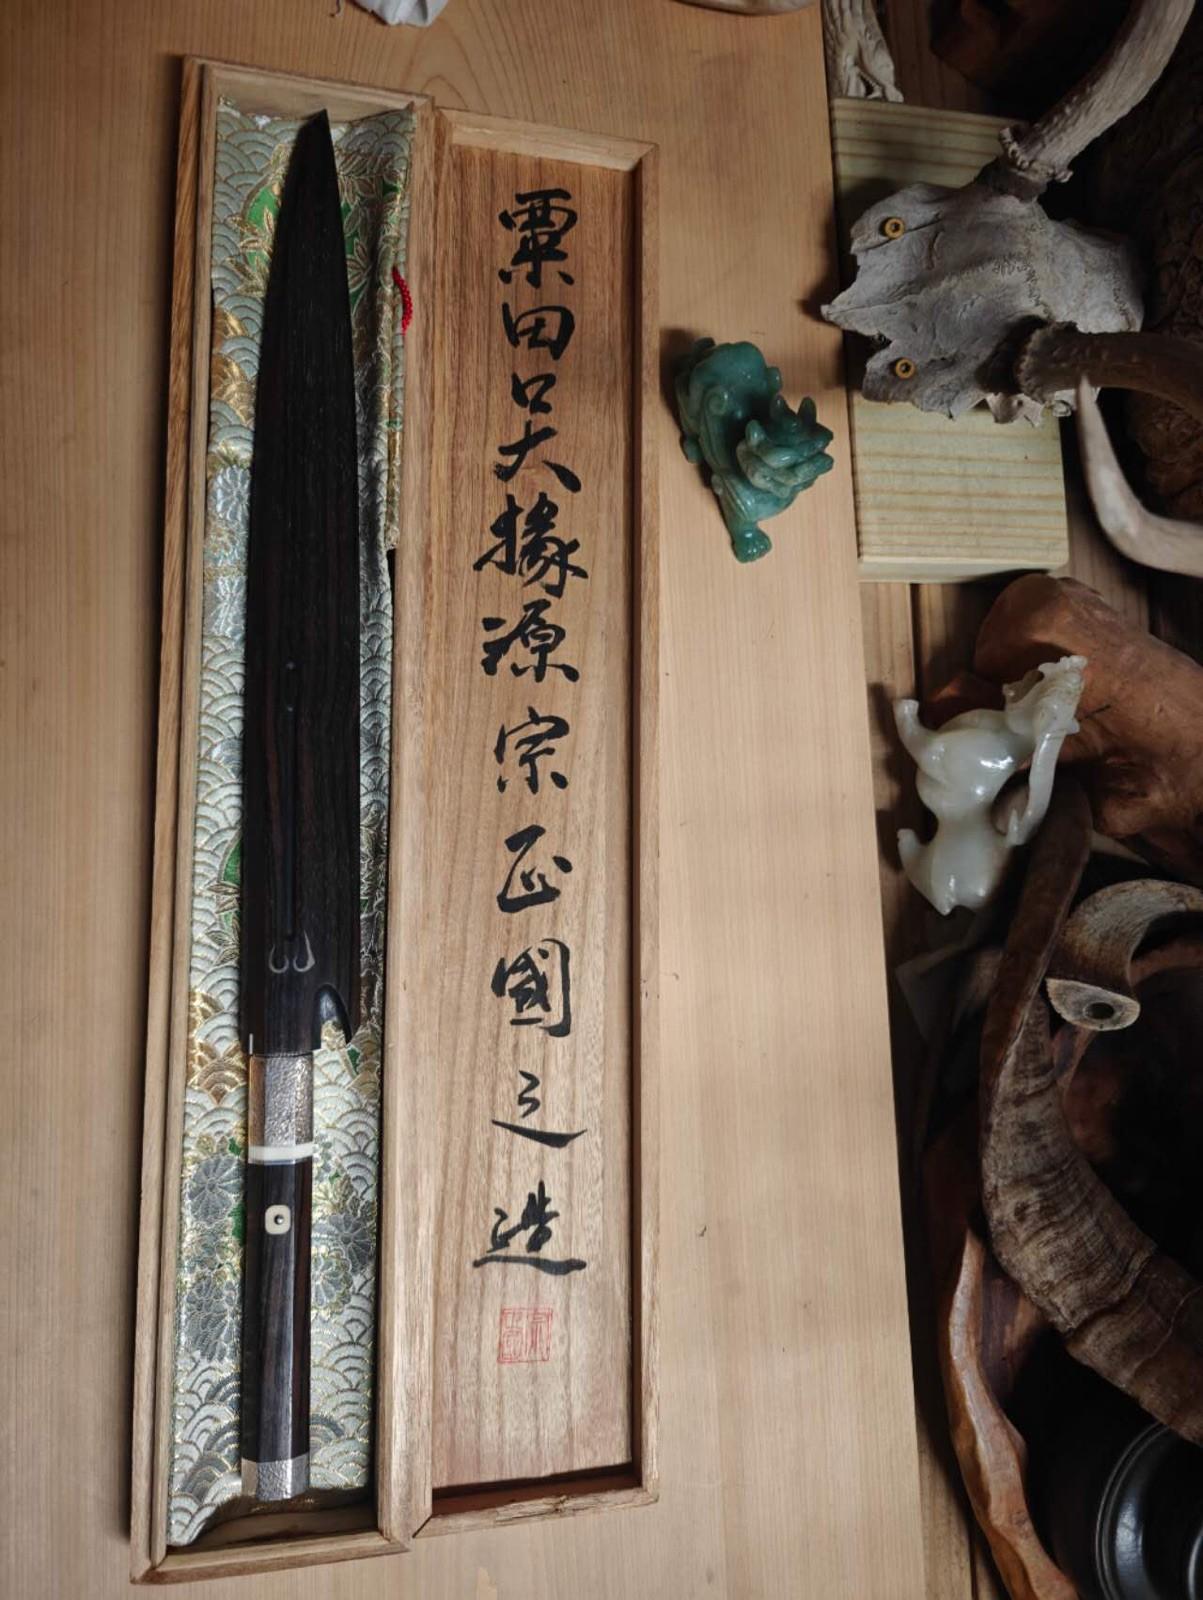 粟田口大掾源宗正國之造